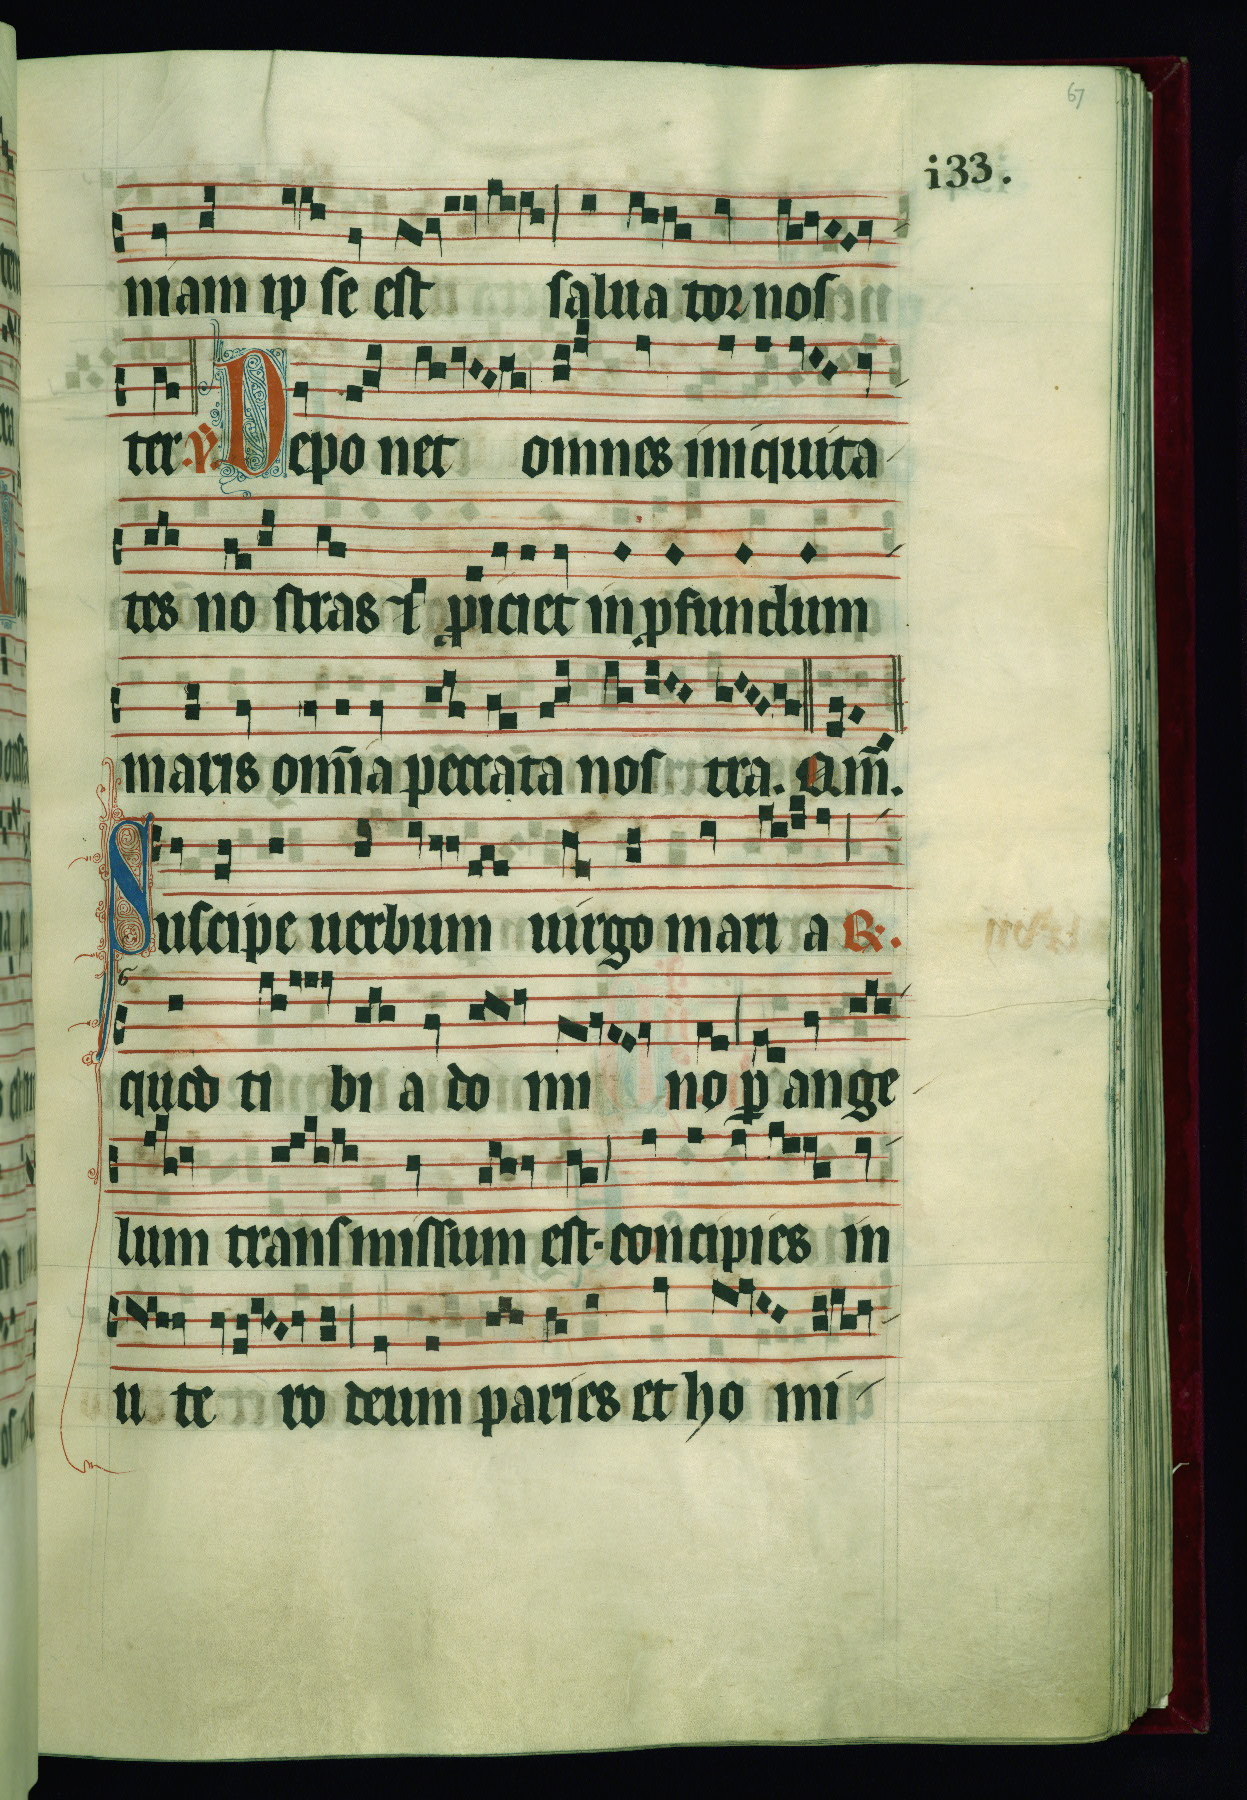 67
i33.
niam ip se est salua tor nos
ter ℣. Depo net omnes iniquita
tes no stras ⁊ ꝓiciet in ꝓfundum
maris om̄ia peccata nos tra. Qm̄.
Suscipe uerbum uirgo mari a ℟.
6
quod ti bi a do mi no ꝑ ange
lum transmissum est. concipies in
u te ro deum paries et ho mi